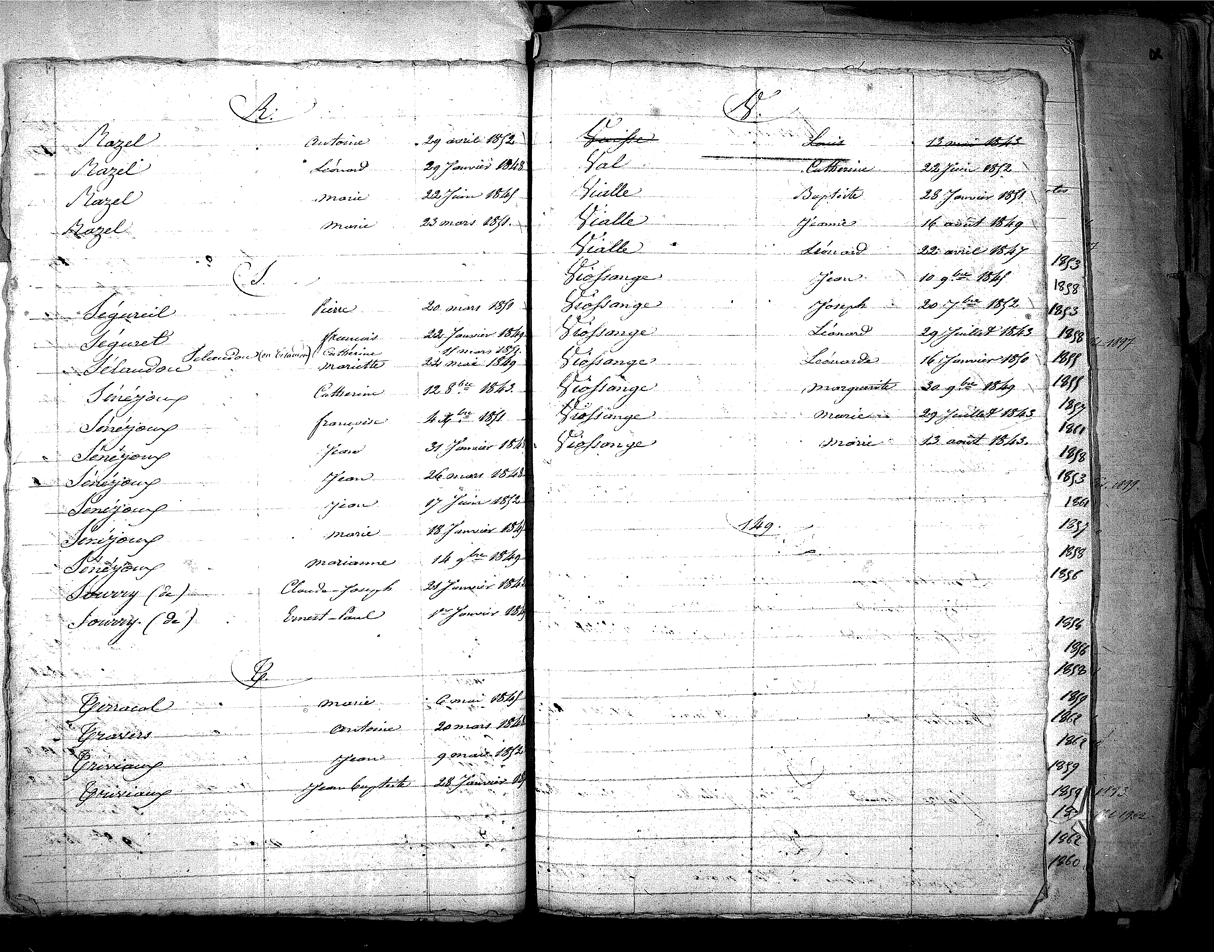 R.
Razel Antoine 29 avril 1852
Razel Léonard 29 Janvier 1848
Razel marie 22 Juin 1845
Razel marie 23 mars 1851.
S.
Ségureil Pierre 20 mars 1851
Séguret françois 22 Janvier 1849
Selaudou (en Estamon) Catherine mars
Sélaudou mariette 24 mai 1849
Sénéjoux Catherine 12 8bre 1843.
Sénéjoux françoise 4 bre 1851
Sénéjoux Jean 31 Janvier
Sénéjoux Jean 26 mars 1848
Sénéjoux Jean 17 Juin 1852
Sénéjoux marie 18 Janvier
Sénéjoux marianne 14 9bre 1849
Sourry (de) Claude-Joseph 21 Janvier
Sourry. (de) Ernest-Paul 1er Janvier
T.
Terracol marie 6 mai 1845
Travers Antoine 20 mars 1848
Triviaux Jean 9 mars 1852
Triviaux Jean Baptiste 28 Janvier
V.
Vaisse Louis 13 mai 1845
Val Catherine 22 Juin 1852
Vialle Baptiste 28 Janvier 1851
Vialle Jeanne 16 août 1849
Vialle Léonard 22 avril 1847
Viossange Jean 10 9bre 1845
Viossange Joseph 20 7bre 1852
Viossange Léonard 29 Juillet 1843
Viossange Léonarde 16 Janvier 1850
Viossange Marguerite 30 9bre 1849
Viossange Marie 29 Juillet 1843
Viossange Marie 13 août 1843.
149.
1853
1858
1853
1858
1855
1855
1857
1861
1858
1853
1861
1857
1858
1856
1856
1858
1858
1859
1859
1859
1862
1860